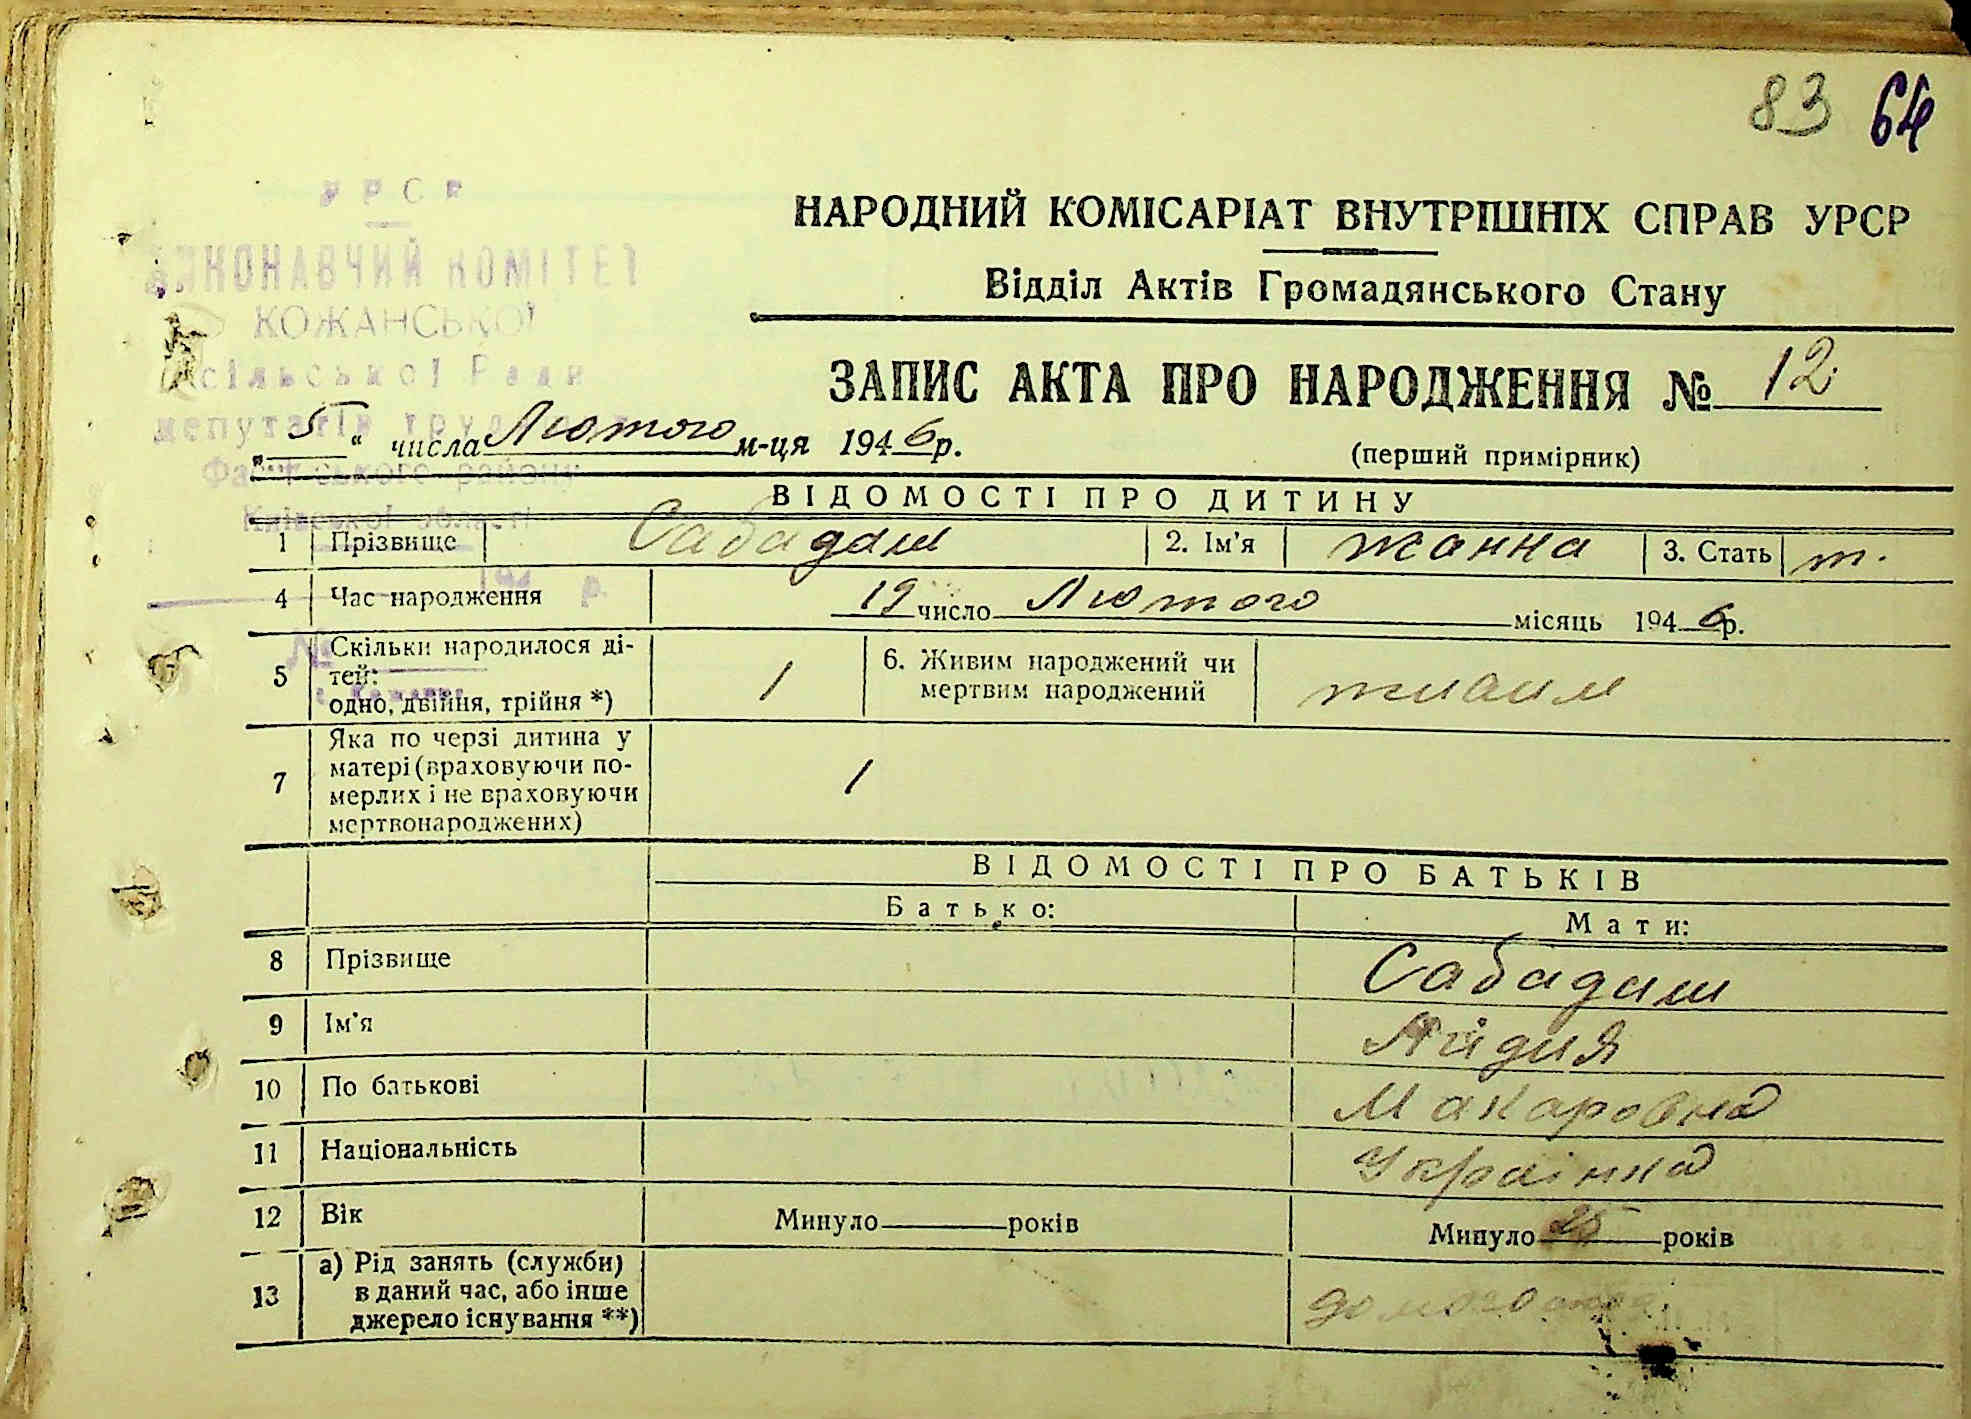 83 64
УРСР
ВИКОНАВЧИЙ КОМІТЕТ
КОЖАНСЬКОЇ
сільської Ради
депутатів
Фастівського району
Київської області
НАРОДНИЙ КОМІСАРІАТ ВНУТРІШНІХ СПРАВ УРСР
Відділ Актів Громадянського Стану
ЗАПИС АКТА ПРО НАРОДЖЕННЯ № 12
„5“ числа Лютого м-ця 1946 р.
(перший примірник)
ВІДОМОСТІ ПРО ДИТИНУ
1 Прізвище Сабадаш 2. Ім'я Жанна 3. Стать ж.
4 Час народження 19 число Лютого місяць 1946 р.
5 Скільки народилося ді-
тей:
одно, двійня, трійня *) 1
6. Живим народжений чи
мертвим народжений живим
7 Яка по черзі дитина у
матері (враховуючи по-
мерлих і не враховуючи
мертвонароджених) 1
ВІДОМОСТІ ПРО БАТЬКІВ
Батько: Мати:
8 Прізвище Сабадаш
9 Ім'я Лідия
10 По батькові Макаровна
11 Національність Українка
12 Вік Минуло років Минуло 25 років
13 а) Рід занять (служби)
в даний час, або інше
джерело існування **)